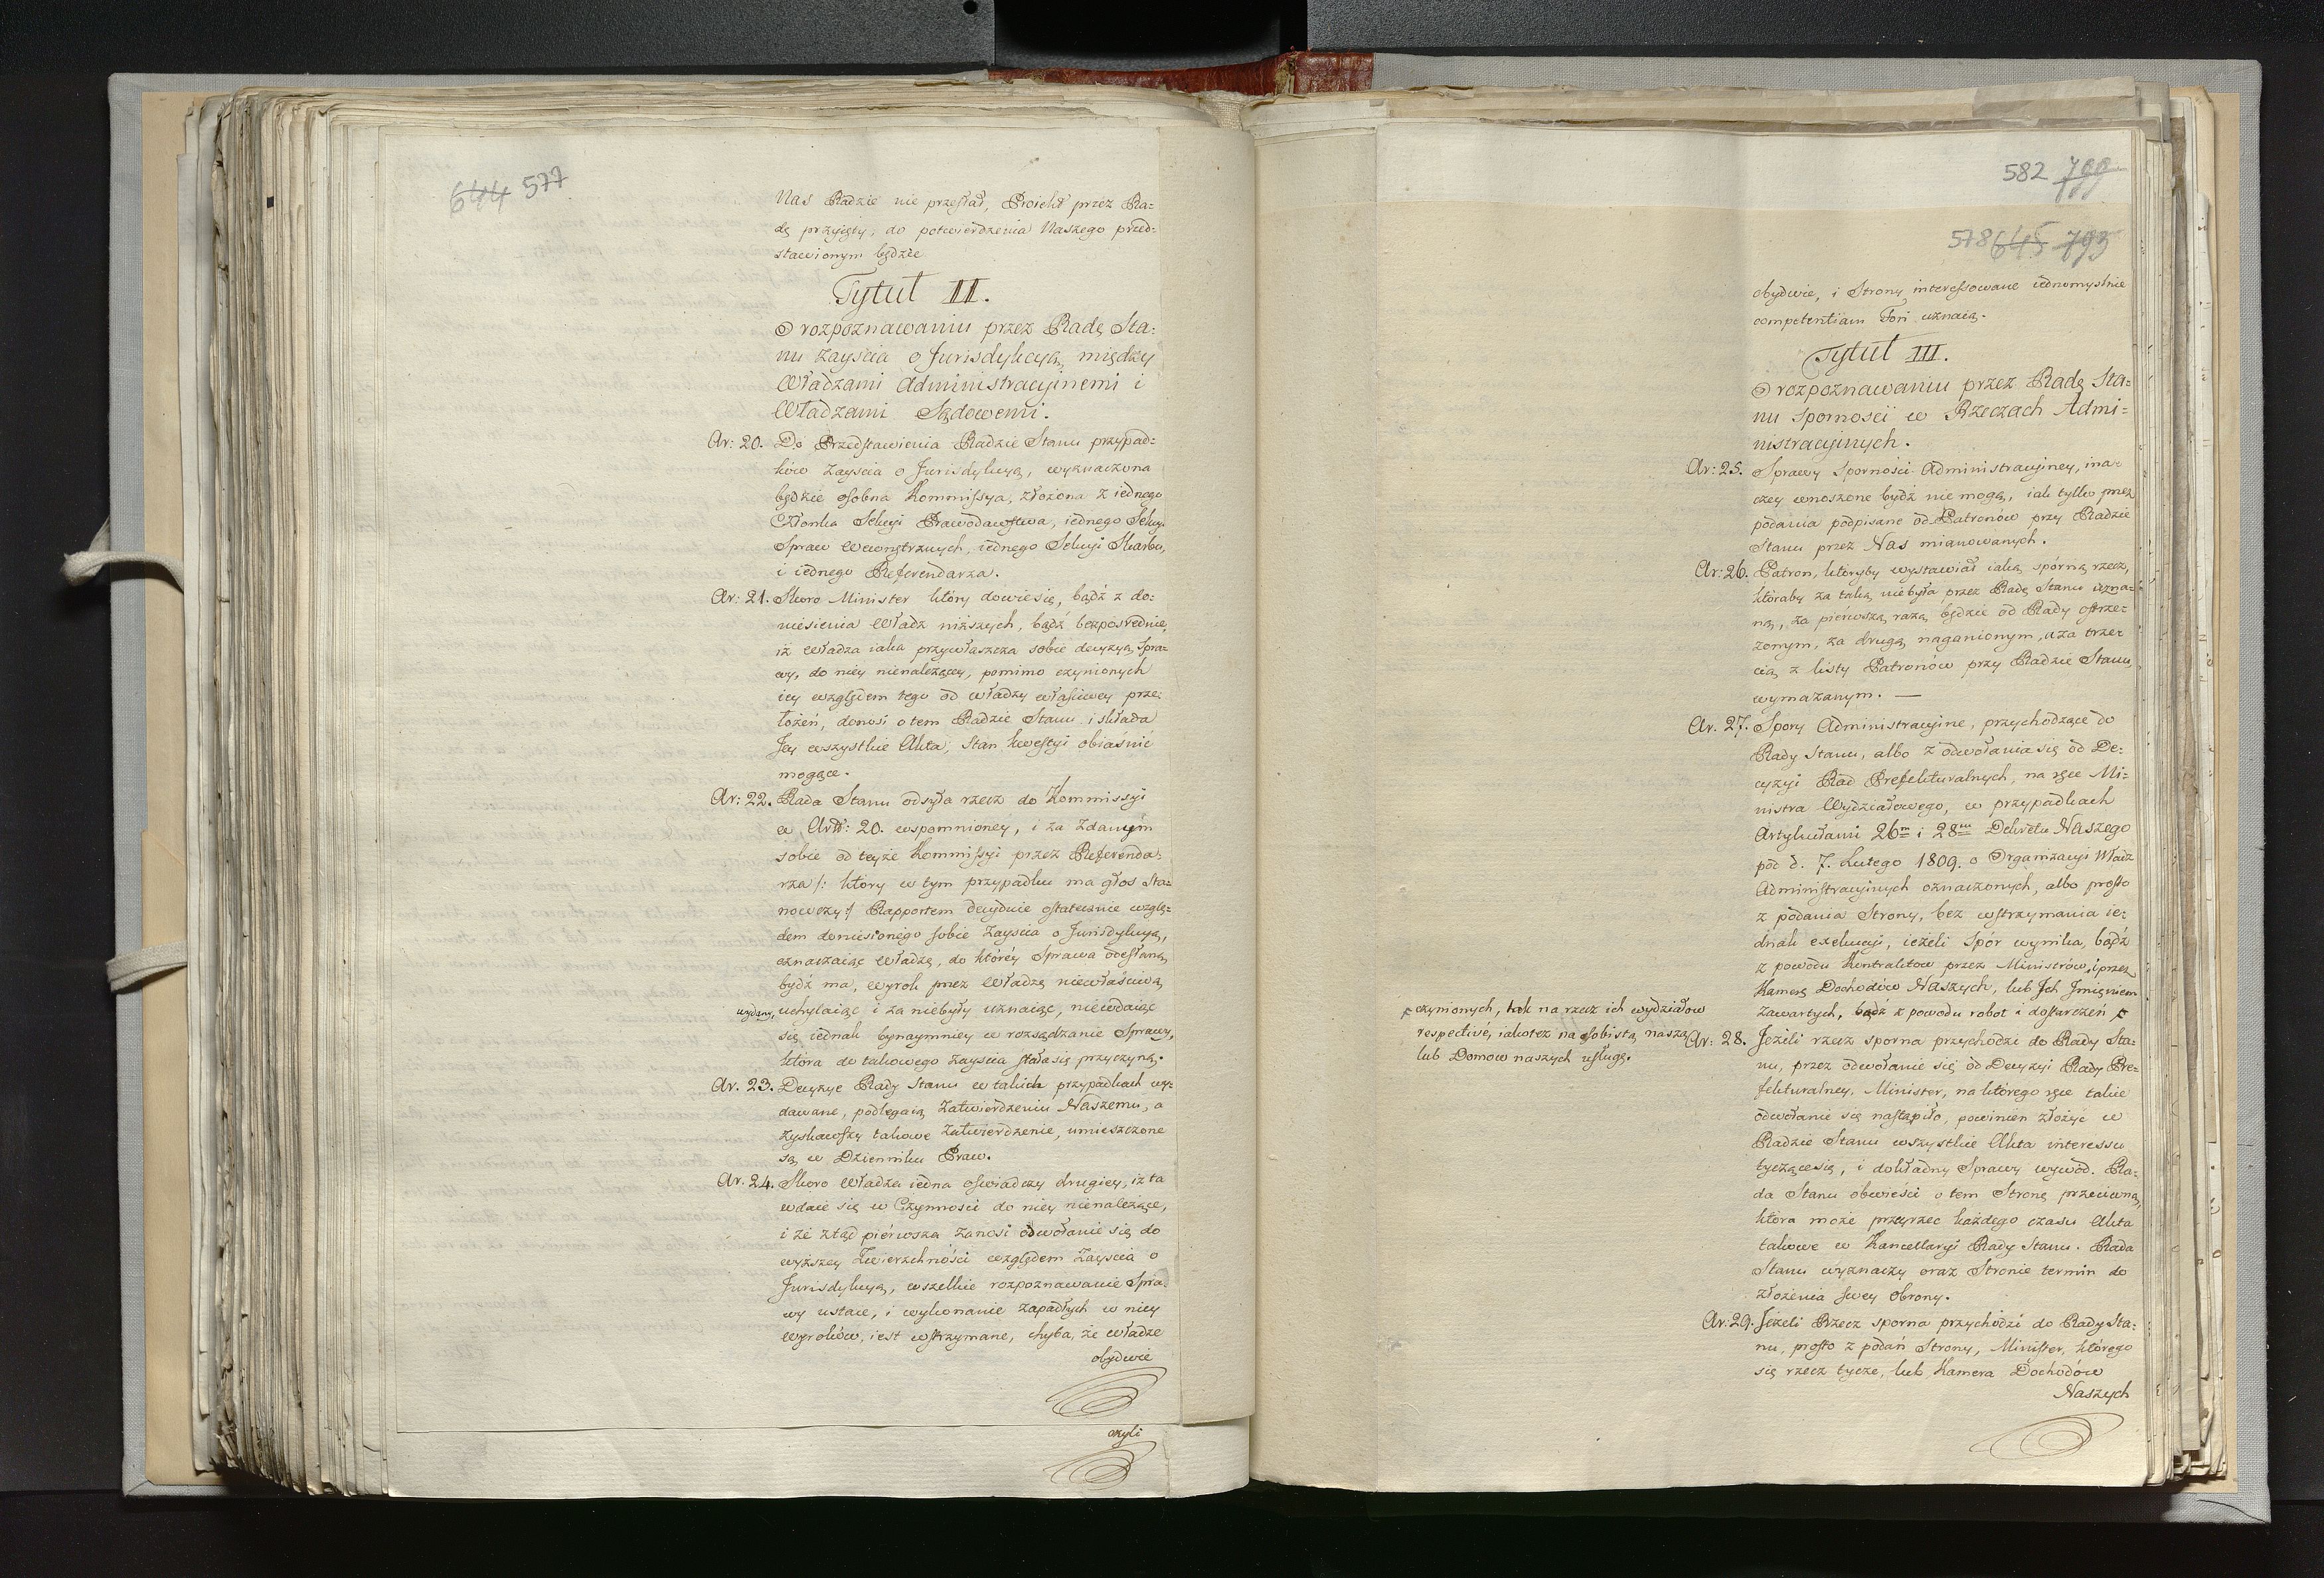 644 577
Nas Radzie nie przesłał, Proiekt przez Ra=
dę przyięty, do potwierdzenia Naszego przed=
stawionym będzie
Tytuł II.
O rozpoznawaniu przez Radę Sta=
nu zayścia o Jurisdykcyą, między
Władzami Administracyinemi i
Władzami Sądowemi.
Ar: 20. Do Przedstawienia Radzie Stanu przypad=
ków zayścia o Jurisdykcyą, wyznaczona
będzie osobna Kommissya, złożona z iednego
Członka Sekcyi Prawodawstwa, iednego Sekcyi
Spraw Wewnętrznych, iednego Sekcyi Skarbu,
i iednego Referendarza.
Ar: 21. Skoro Minister który dowie się, bądź z do=
niesienia Władz niższych, bądź bezpośrednie,
iż Władza iaka przywłaszcza sobie decyzyą Spra=
wy, do niey nienależącey, pomimo czynionych
iey względem tego od władzy właściwey prze=
łożeń, donosi o tem Radzie Stanu i składa
Jey wszystkie Akta, Stan kwestyi obiaśnić
mogące.
Ar: 22. Rada Stanu odsyła rzecz do Kommissyi
w Artł: 20. wspomnioney, i za zdanym
sobie od teyże Kommissyi przez Referenda=
rza /: który w tym przypadku ma głos Sta=
nowczy :/ Rapportem decyduie ostatecznie wzglę=
dem doniesionego sobie zayścia o Jurisdykcyą,
oznaczaiąc Władzę, do któréy Sprawa odesłaną
bydź ma, Wyrok przez Władzę niewłaściwą
wydany, uchylaiąc i za niebyły uznaiąc, niewdaiąc
się iednak bynaymniey w rozsądzanie Sprawy,
która do takowego zayścia stała się przyczyną.
Ar. 23. Decyzye Rady Stanu w takich przypadkach wy=
dawane, podlegaią zatwierdzeniu Naszemu, a
zyskawszy takowe zatwierdzenie, umieszczone
są w Dzienniku Praw.
Ar. 24. Skoro Władza iedna oświadczy drugiey, iż ta
wdaie się w Czynności do niey nienależące,
i że ztąd piérwsza zanosi odwołanie się do
wyższey Zwierzchności względem zayścia o
Jurisdykcyą, wszelkie rozpoznawanie Spra=
wy ustaie, i wykonanie zapadłych w niey
Wyroków, iest wstrzymane, chyba, że władze
obydwie
czyli
582 799
578 645 793
obydwie, i Strony interessowane iednomyślnie
competentiam Fori uznaią.
Tytuł III.
O rozpoznawaniu przez Radę Sta=
nu sporności w Rzeczach Admi=
nistracyinych.
Ar: 25. Sprawy Sporności Administracyiney, ina=
czey wnoszone bydź nie mogą, iak tylko przez
podania podpisane od Patronów przy Radzie
Stanu przez Nas mianowanych.
Ar: 26. Patron, któryby wystawiał iaką spórną rzecz,
któraby za taką nie była przez Radę Stanu uzna=
ną, za piérwszą razą będzie od Rady ostrze=
żonym, za drugą naganionym, a za trze=
cią z listy Patronów przy Radzie Stanu
wymazanym. —
Ar. 27. Spory Administracyine, przychodzące do
Rady Stanu, albo z odwołania się od De=
cyzyi Rad Prefekturalnych, na ręce Mi=
nistra Wydziałowego, w przypadkach
Artykułami 26m i 28m Dekretu Naszego
pod d. 7. Lutego 1809. o Organizacyi Władz
Administracyinych oznaczonych, albo prosto
z podania Strony, bez wstrzymania ie=
dnak exekucyi, ieżeli Spór wynika, bądź
z powodu Kontraktow przez Ministrów, i przez
Kamerę Dochodów Naszych, lub Ich Imieniem
zawartych, bądź z powodu robot i dostarczeń
czynionych, tak na rzecz ich wydziałow
respectivè, iakotez na osobistą naszą
lub Domow naszych usługę.
Ar: 28. Jeżeli rzecz sporna przychodzi do Rady Sta=
nu, przez odwołanie się od Decyzyi Rady Pre=
fekturalney, Minister, na którego ręce takie
odwołanie się nastąpiło, powinien złożyć w
Radzie Stanu wszystkie Akta interessu
tyczące się, i dokładny Sprawy wywód. Ra=
da Stanu obwieści o tem Stronę przeciwną,
która może przeyrzec każdego czasu Akta
takowe w Kancellaryi Rady Stanu. Rada
Stanu wyznaczy oraz Stronie termin do
złożenia swey Obrony.
Ar: 29. Jeżeli Rzecz sporna przychodzi do Rady Sta=
nu, prosto z podań Strony, Minister, którego
się rzecz tycze, lub Kamera Dochodów
Naszych